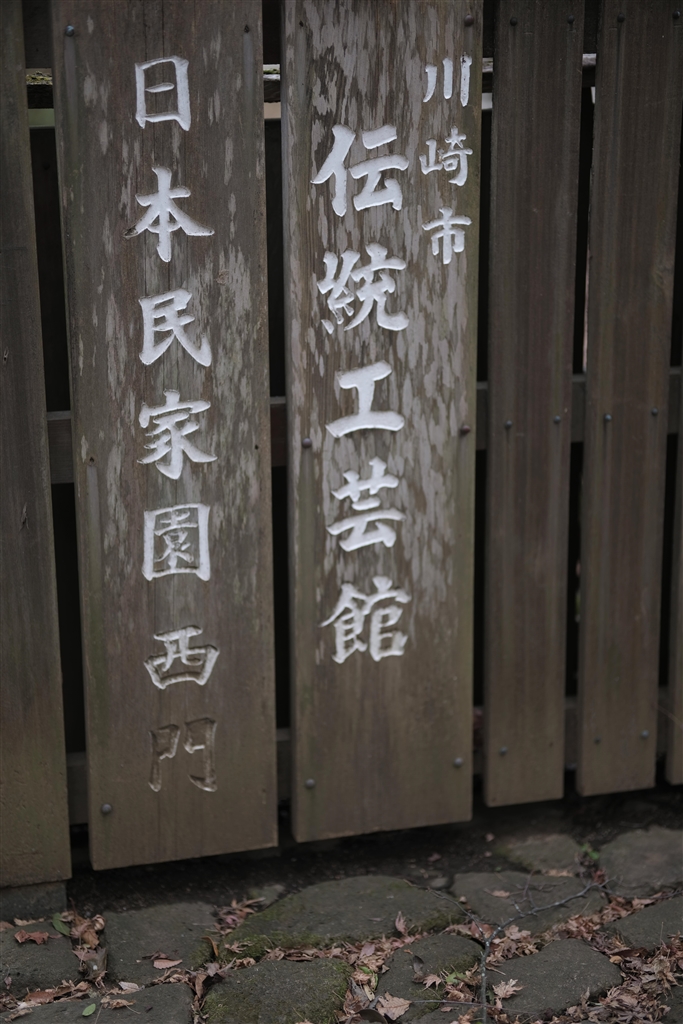 川崎市
伝統工芸館
日本民家園西門